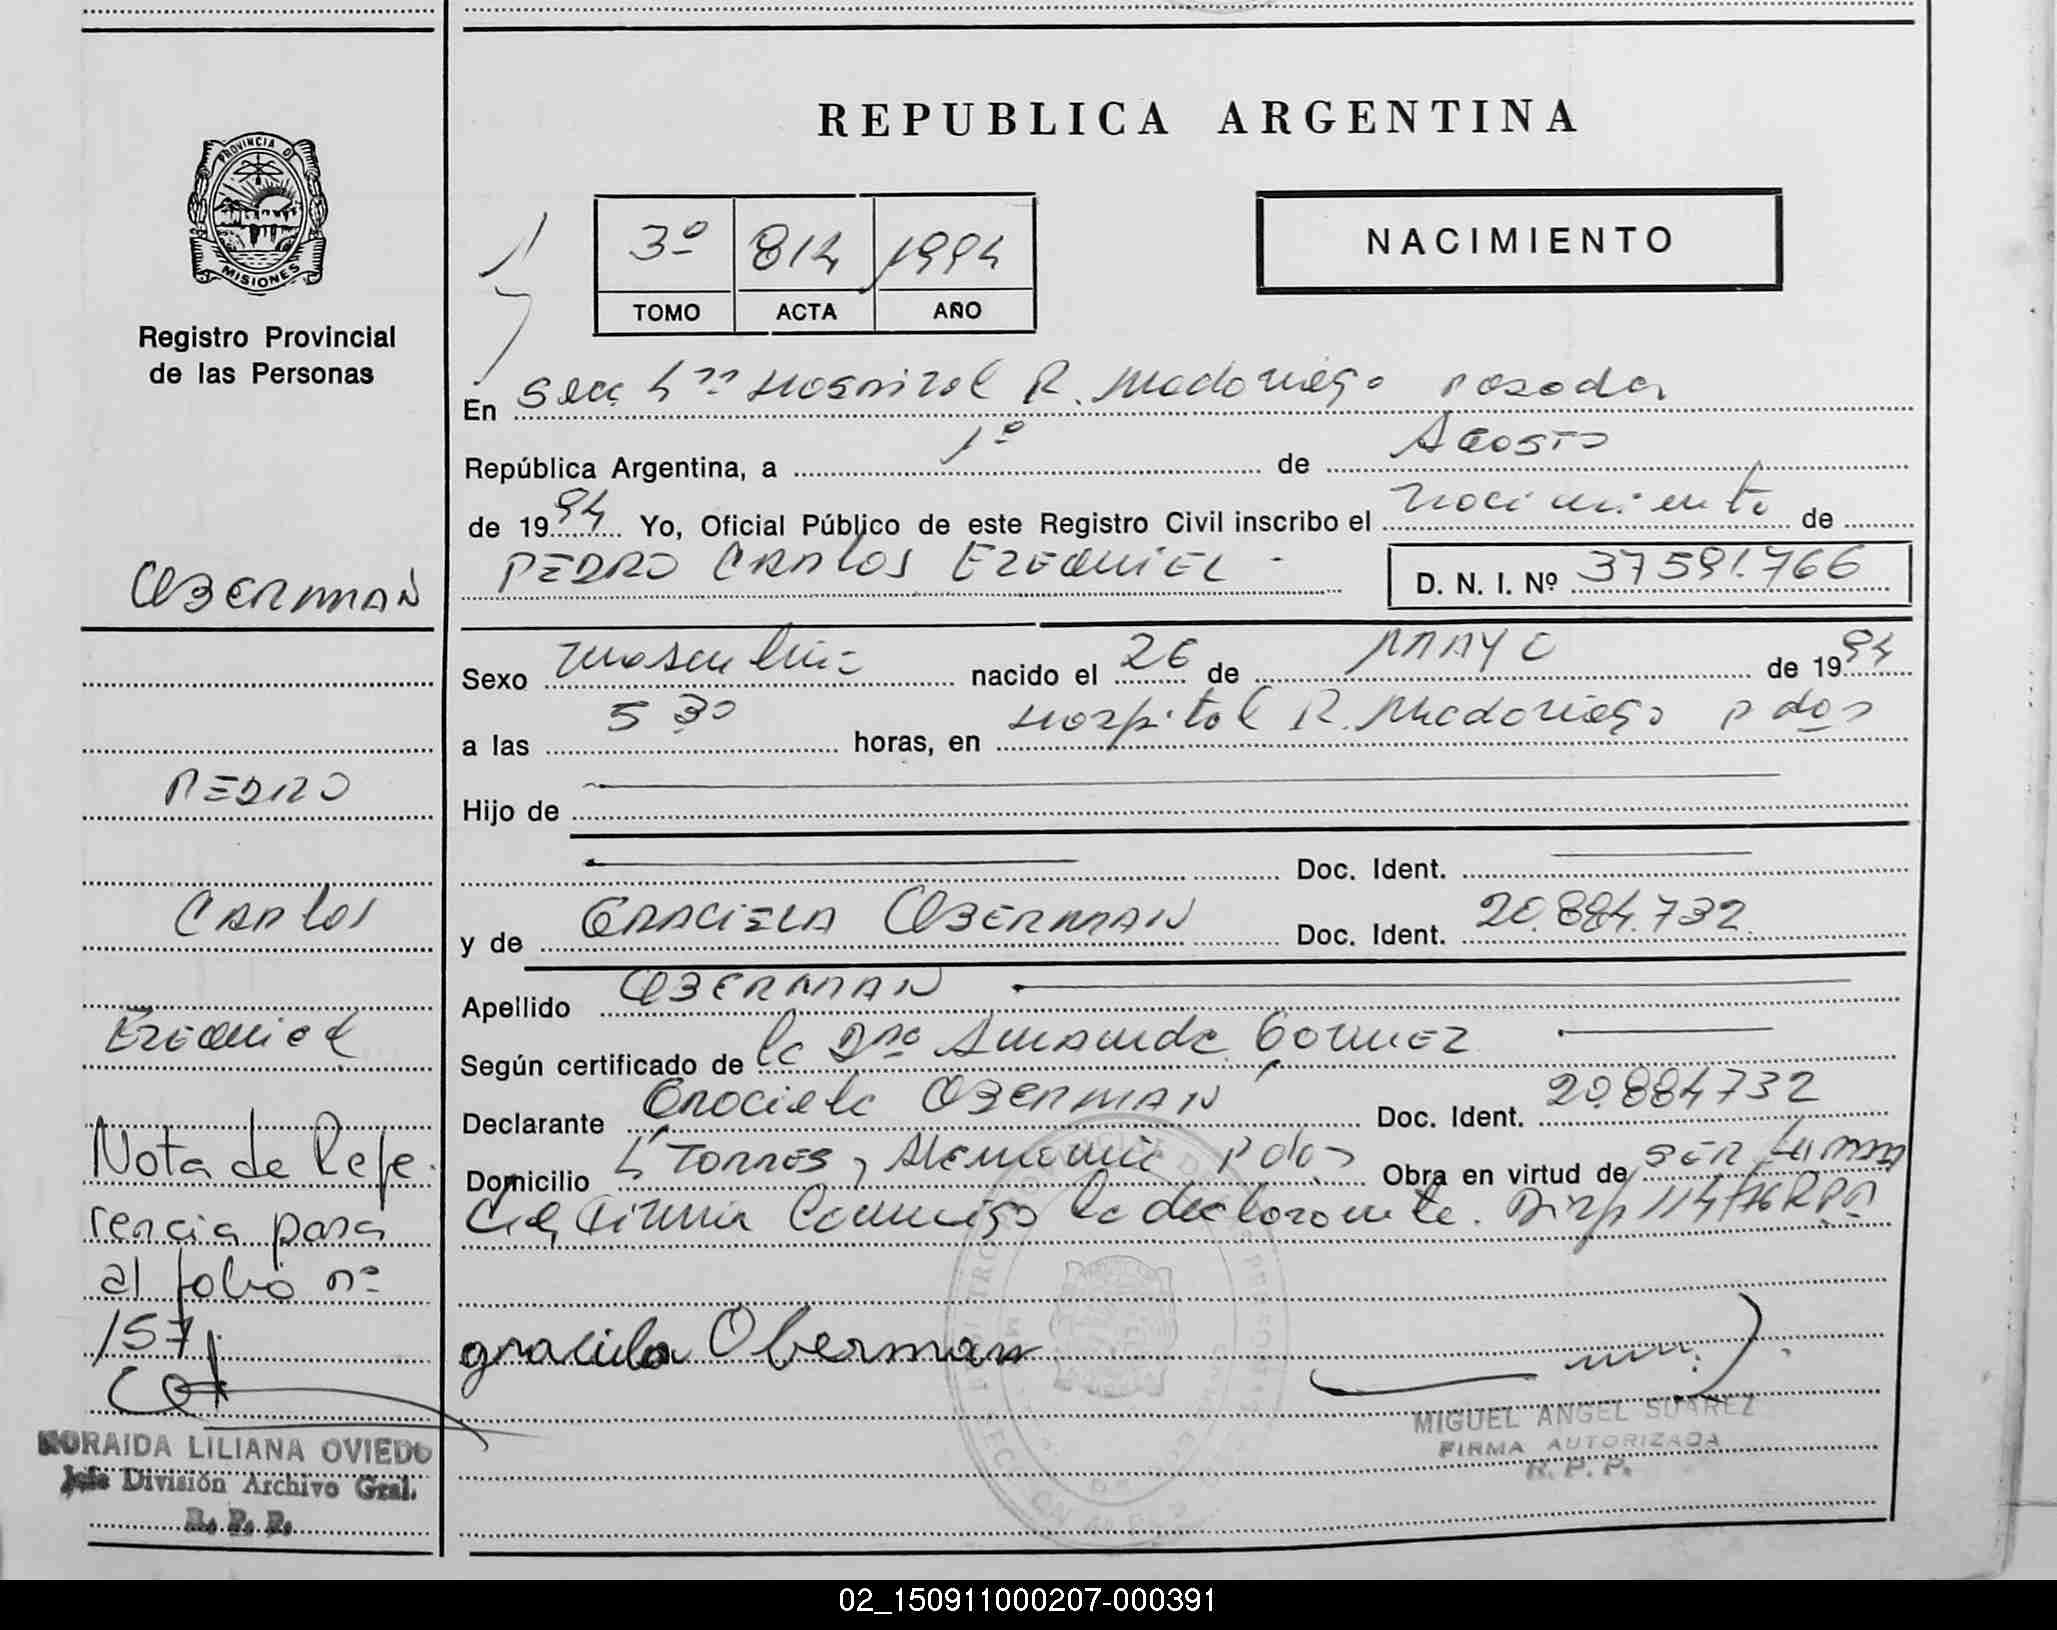 REPUBLICA ARGENTINA
PROVINCIA D
MISIONES
Registro Provincial
de las Personas
3º 814 1994
TOMO ACTA AÑO
NACIMIENTO
En Secc 4ta Hospital R. Madariaga Posadas
República Argentina, a 1º de Agosto
de 1994 Yo, Oficial Público de este Registro Civil inscribo el nacimiento de
PEDRO CARLOS EZEQUIEL - D. N. I. Nº 37591.766
OBERMAN
Sexo masculino nacido el 26 de MAYO de 1994
a las 5 30 horas, en Hospital R. Madariaga Pdas
Hijo de
Doc. Ident.
y de GRACIELA OBERMAN Doc. Ident. 20.884.732
Apellido OBERMAN
Según certificado de la Dra Amanda Gomez
Declarante Graciela OBERMAN Doc. Ident. 20.884732
Domicilio TORRES y Alemania Pdas Obra en virtud de SER La MADRE
firma conmigo la declarante. Disp 114/76 RPP
PEDRO
CARLOS
EZEQUIEL
Nota de Refe-
rencia para
al folio nº
157
graciela Oberman
MIGUEL ANGEL SUAREZ
FIRMA AUTORIZADA
R. P. P.
ZORAIDA LILIANA OVIEDO
Jefe División Archivo Gral.
R. P. P.
02_150911000207-000391